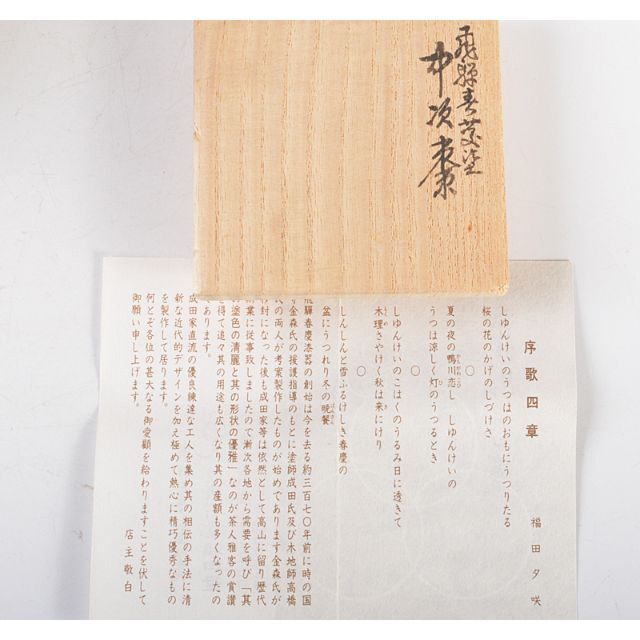 飛騨春慶塗
中次棗
序歌四章
福田夕咲
しゆんけいのうつはのおもにうつりたる
桜の花のかげのしづけさ
○
夏の夜の鴨川恋し しゆんけいの
うつは涼しく灯のうつるとき
○
しゆんけいのこはくのうるみ日に透きて
木理さやけく秋は来にけり
○
しんしんと雪ふるけしき春慶の
盆にうつれり冬の晩餐
飛騨春慶漆器の創始は今を去る約三百七〇年前に時の国
守金森氏の援護指導のもとに塗師成田氏及び木地師高橋
氏の両人が考案製作したものが始めであります金森氏が
封になった後も成田家等は依然として高山に留り歴代
業に従事致しましたので漸次各地から需要を呼び「其
の塗色の清麗と其の形状の優雅」なのが茶人雅客の賞讃
を得て追々其の用途も広くなり其の産額も多くなったの
あります。
成田家直流の優良練達な工人を集め其の相伝の手法に清
新な近代的デザインを加え極めて熱心に精巧優秀なもの
を製作して居ります。
何とぞ各位の甚大なる御愛顧を給わりますことを伏して
御願い申し上げます。
店主敬白